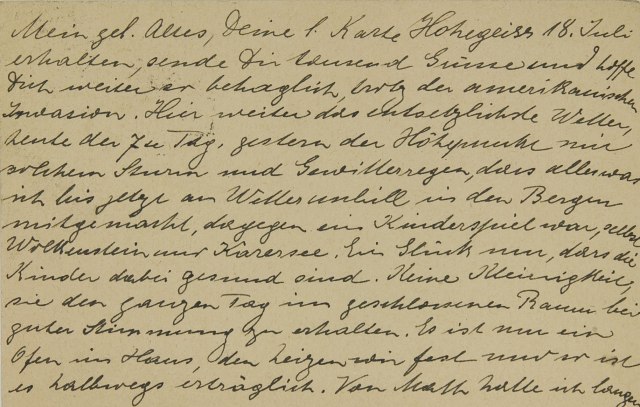 Mein gel. Altes, Deine l. Karte Hohegeiss 18. Juli
erhalten, sende Dir tausend Grüsse und hoffe
Dich weiter so behaglich, trotz der amerikanischen
Invasion. Hier weiter das entsetzlichste Wetter,
heute der 7te Tag, gestern der Höhepunkt mit
solchem Sturm und Gewitterregen, dass alles was
ich bis jetzt an Wetterunbill in den Bergen
mitgemacht, dagegen ein Kinderspiel war, selbst
Wolkenstein und Karersee. Ein Glück nur, dass die
Kinder dabei gesund sind. Keine Kleinigkeit,
sie den ganzen Tag im geschlossenen Raum bei
guter Stimmung zu erhalten. Es ist nur ein
Ofen im Haus, den heizen wir fest und so ist
es halbwegs erträglich. Von Math hatte ich langen